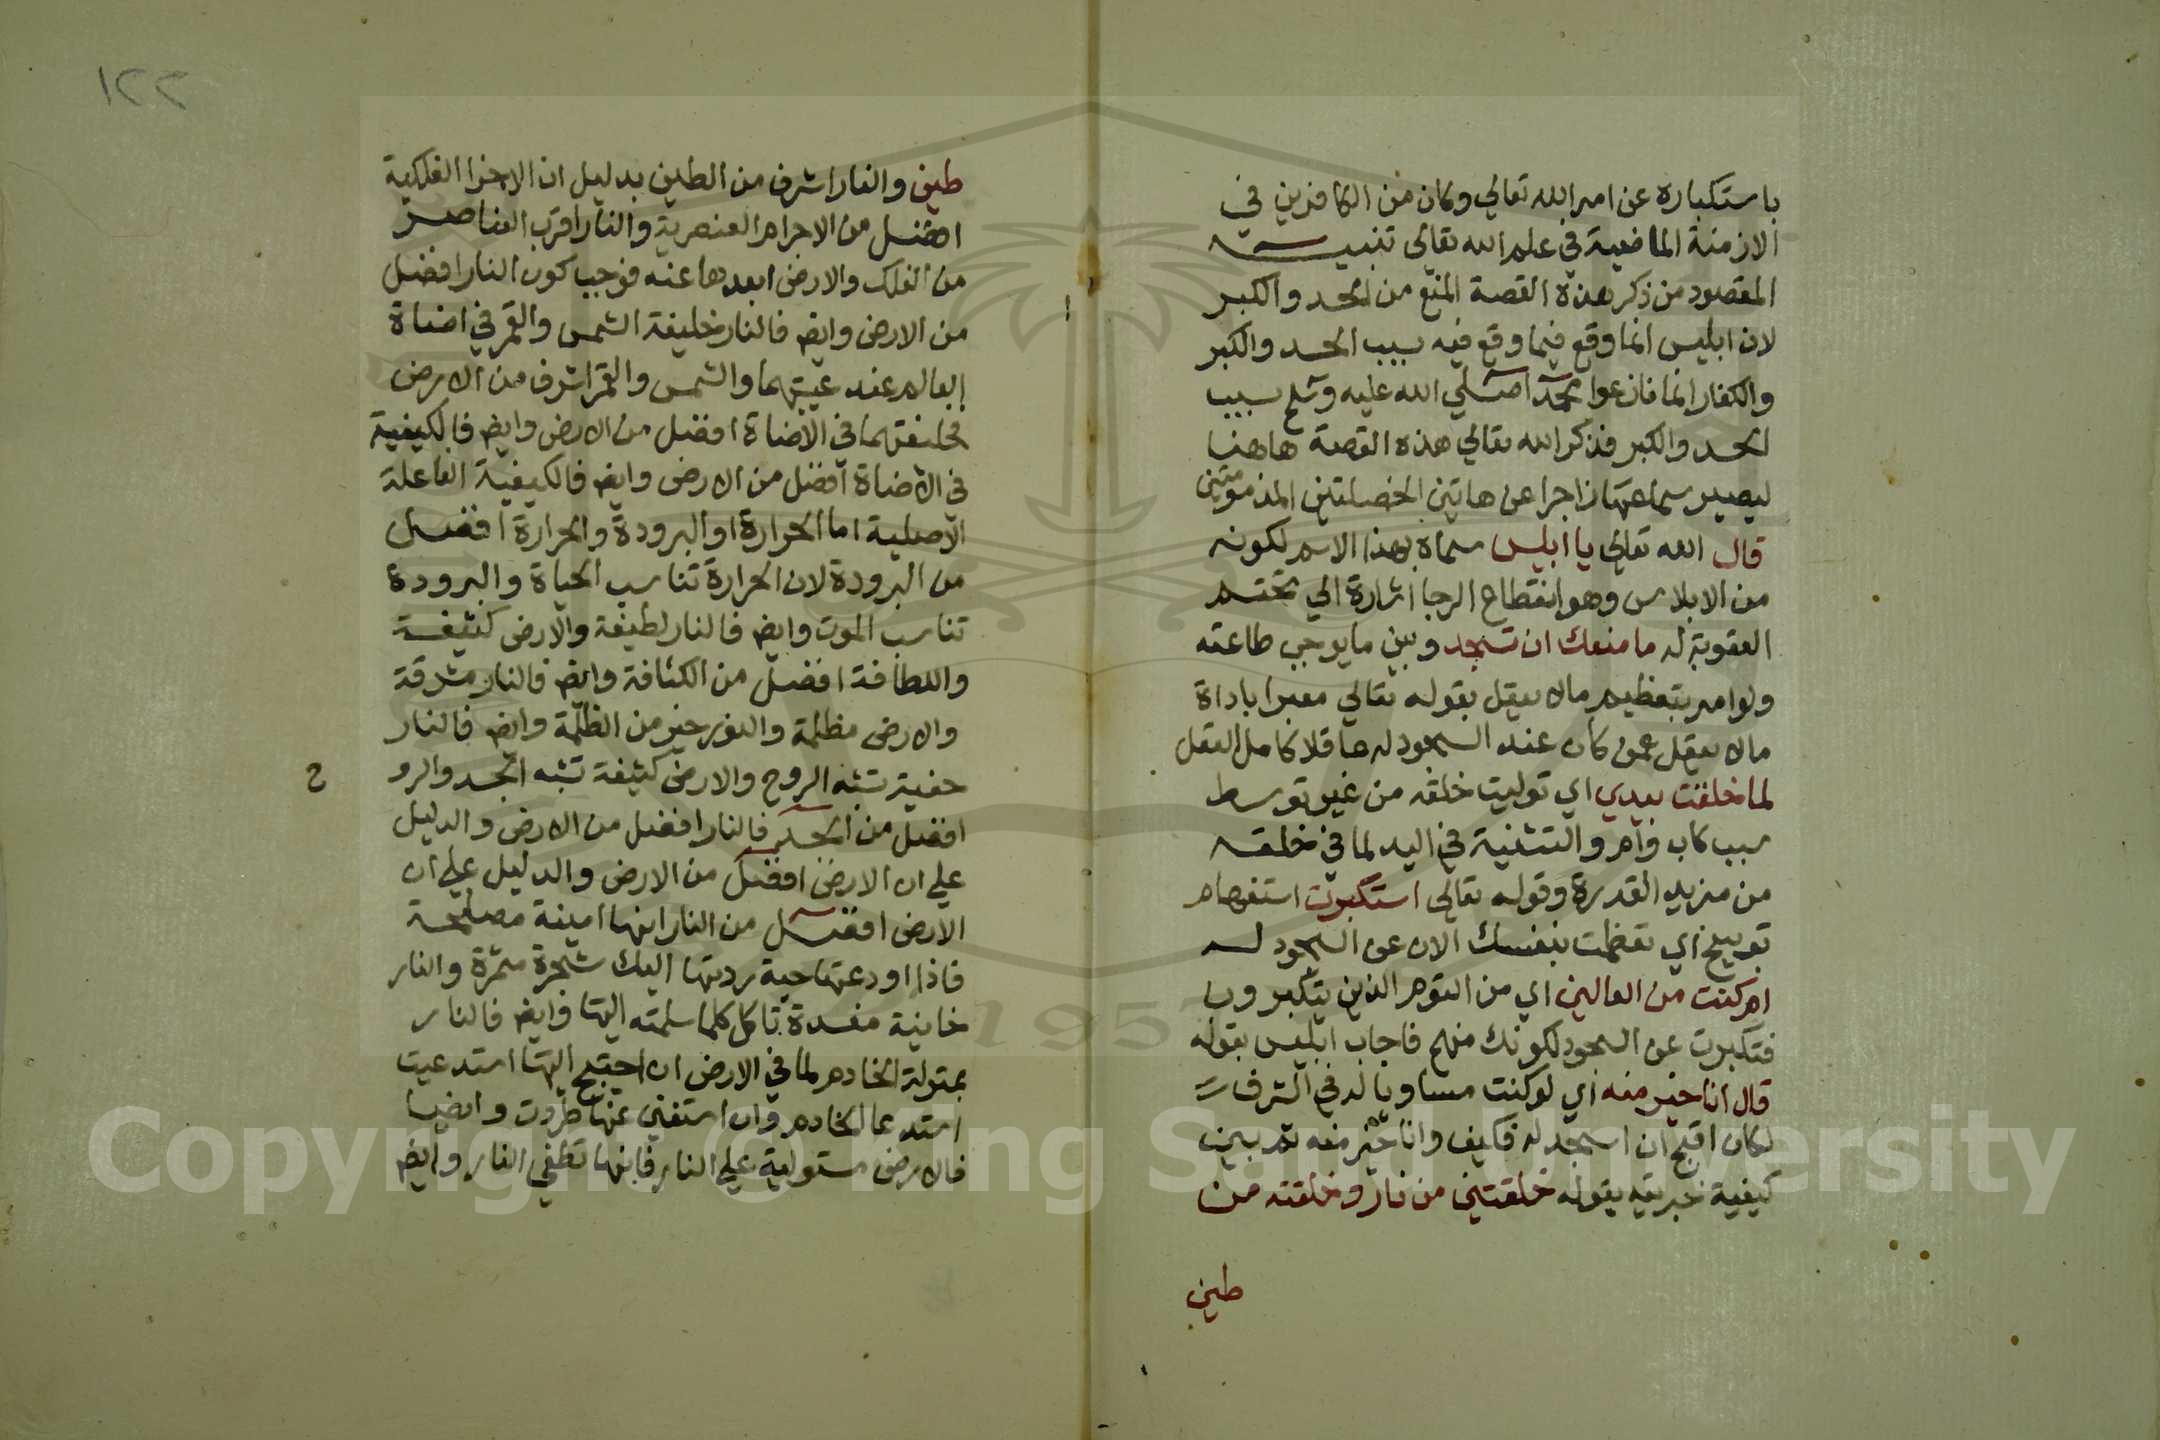 باستكباره عن امر الله تعالي وكان من الكافرين في
الازمنة الماضية في علم الله تعالى تنبيه
المقصود من ذكر هذه القصة المنع من الحسد والكبر
لان ابليس انما وقع فيما وقع فيه بسبب الحسد والكبر
والكفار انما نازعوا محمدا صلي الله عليه وسلم بسبب
الحسد والكبر فذكر الله تعالي هذه القصة هاهنا
ليصير سماعها زاجرا عن هاتين الخصلتين المذمومتين
قال الله تعالى يا ابليس سماه بهذا الاسم لكونه
من الابلاس وهو انقطاع الرجا اشارة الي تحتم
العقوبة له ما منعك ان تسجد وبين ما يوجب طاعته
ولو امر بتعظيم مالا يعقل بقوله تعالي معبرا باداة
مالا يعقل عمن كان عند السجود له عاقلا كامل العقل
لما خلقت بيدي اي توليت خلقه من غير توسط
سبب كاب وام والتثنية في اليد لما في خلقه
من مزيد القدرة وقوله تعالى استكبرت استفهام
توبيخ اي تعظمت بنفسك الان عن السجود له
ام كنت من العالين اي من القوم الذين يتكبرون
فتكبرت عن السجود لكونك منهم فاجاب ابليس بقوله
قال انا خير منه اي لو كنت مساويا له في الشرف
لكان اقبح ان اسجد له فكيف وانا خير منه ثم بين
كيفية خيريته بقوله خلقتني من نار وخلقته من
طين
١٢٢
طين والنار اشرف من الطين بدليل ان الاجزا الفلكية
افضل من الاجرام العنصرية والنار اقرب العناصر
من الفلك والارض ابعدها عنه فوجب كون النار افضل
من الارض وايضا فالنار خليفة الشمس والقمر في اضاة
العالم عند غيبتهما والشمس والقمر اشرف من الارض
فخليفتهما في الاضاة افضل من الارض وايضا فالكيفية
في الاضاة افضل من الارض وايضا فالكيفية الفاعلة
الاصلية اما الحرارة او البرودة والحرارة افضل
من البرودة لان الحرارة تناسب الحياة والبرودة
تناسب الموت وايضا فالنار لطيفة والارض كثيفة
واللطافة افضل من الكثافة وايضا فالنار مشرقة
والارض مظلمة والنور خير من الظلمة وايضا فالنار
خفية تشبه الروح والارض كثيفة تشبه الجسد والرو
ح
افضل من الجسد فالنار افضل من الارض والدليل
علي ان الارض افضل من الارض والدليل علي ان
الارض افضل من النار انها امينة مصلحة
فاذا اودعتها حبة ردتها اليك شجرة مثمرة والنار
خاينة مفسدة تاكل كلما سلمته اليها وايضا فالنار
بمنزلة الخادم لما في الارض ان احتيج اليها استدعيت
استدعا الخادم وان استغني عنها طردت وايضا
فالارض مستولية علي النار فانها تطفي النار وايضا
Copyright © King Saud University
1957